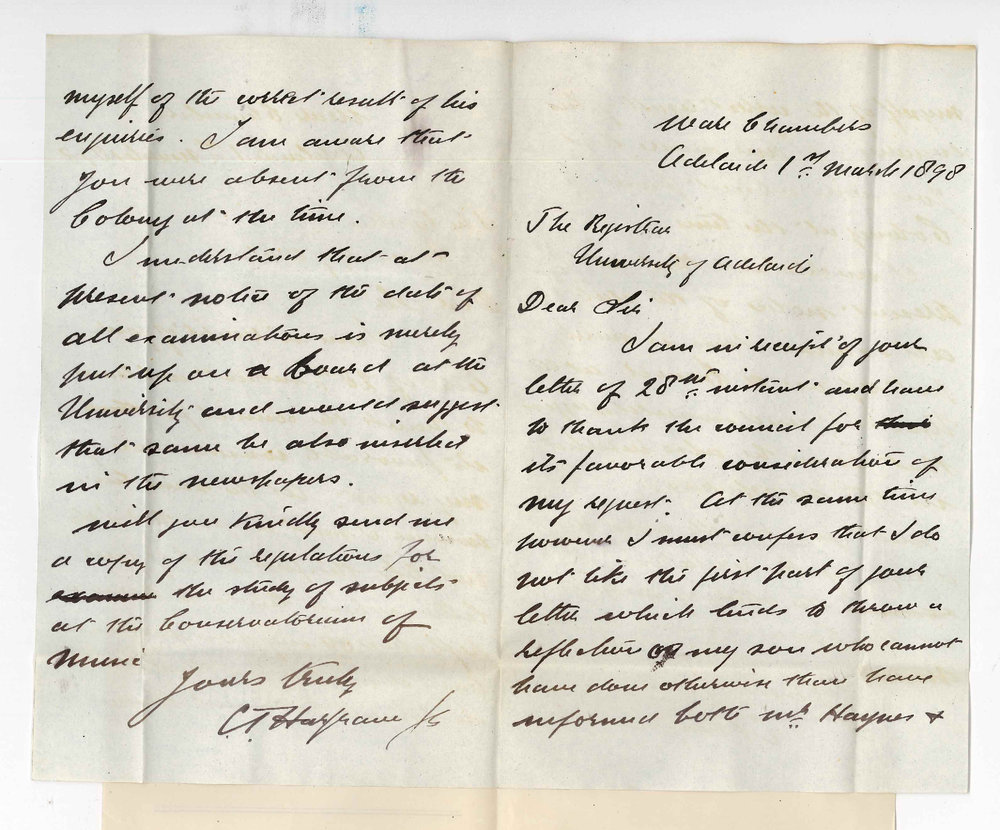 Ware Chambers
Adelaide 1st March 1898
The Registrar
University of Adelaide
Dear Sir
I am in receipt of your
letter of 28th instant and have
to thank the council for
its favorable consideration of
my request. At the same time
however I must confess that I do
not like the first part of your
letter which tends to throw a
reflection on my son who cannot
have done otherwise than have
informed both Mr Haynes &
myself of the correct result of his
enquiries. I am aware that
you were absent from the
Colony at the time.
I understand that at
present notice of the date of
all examinations is merely
put up on a Board at the
University and would suggest
that same be also inserted
in the newspapers.
Will you kindly send me
a copy of the regulations for
the study of subjects
at the Conservatorium of
Music
Yours truly
C. T. Hargrave